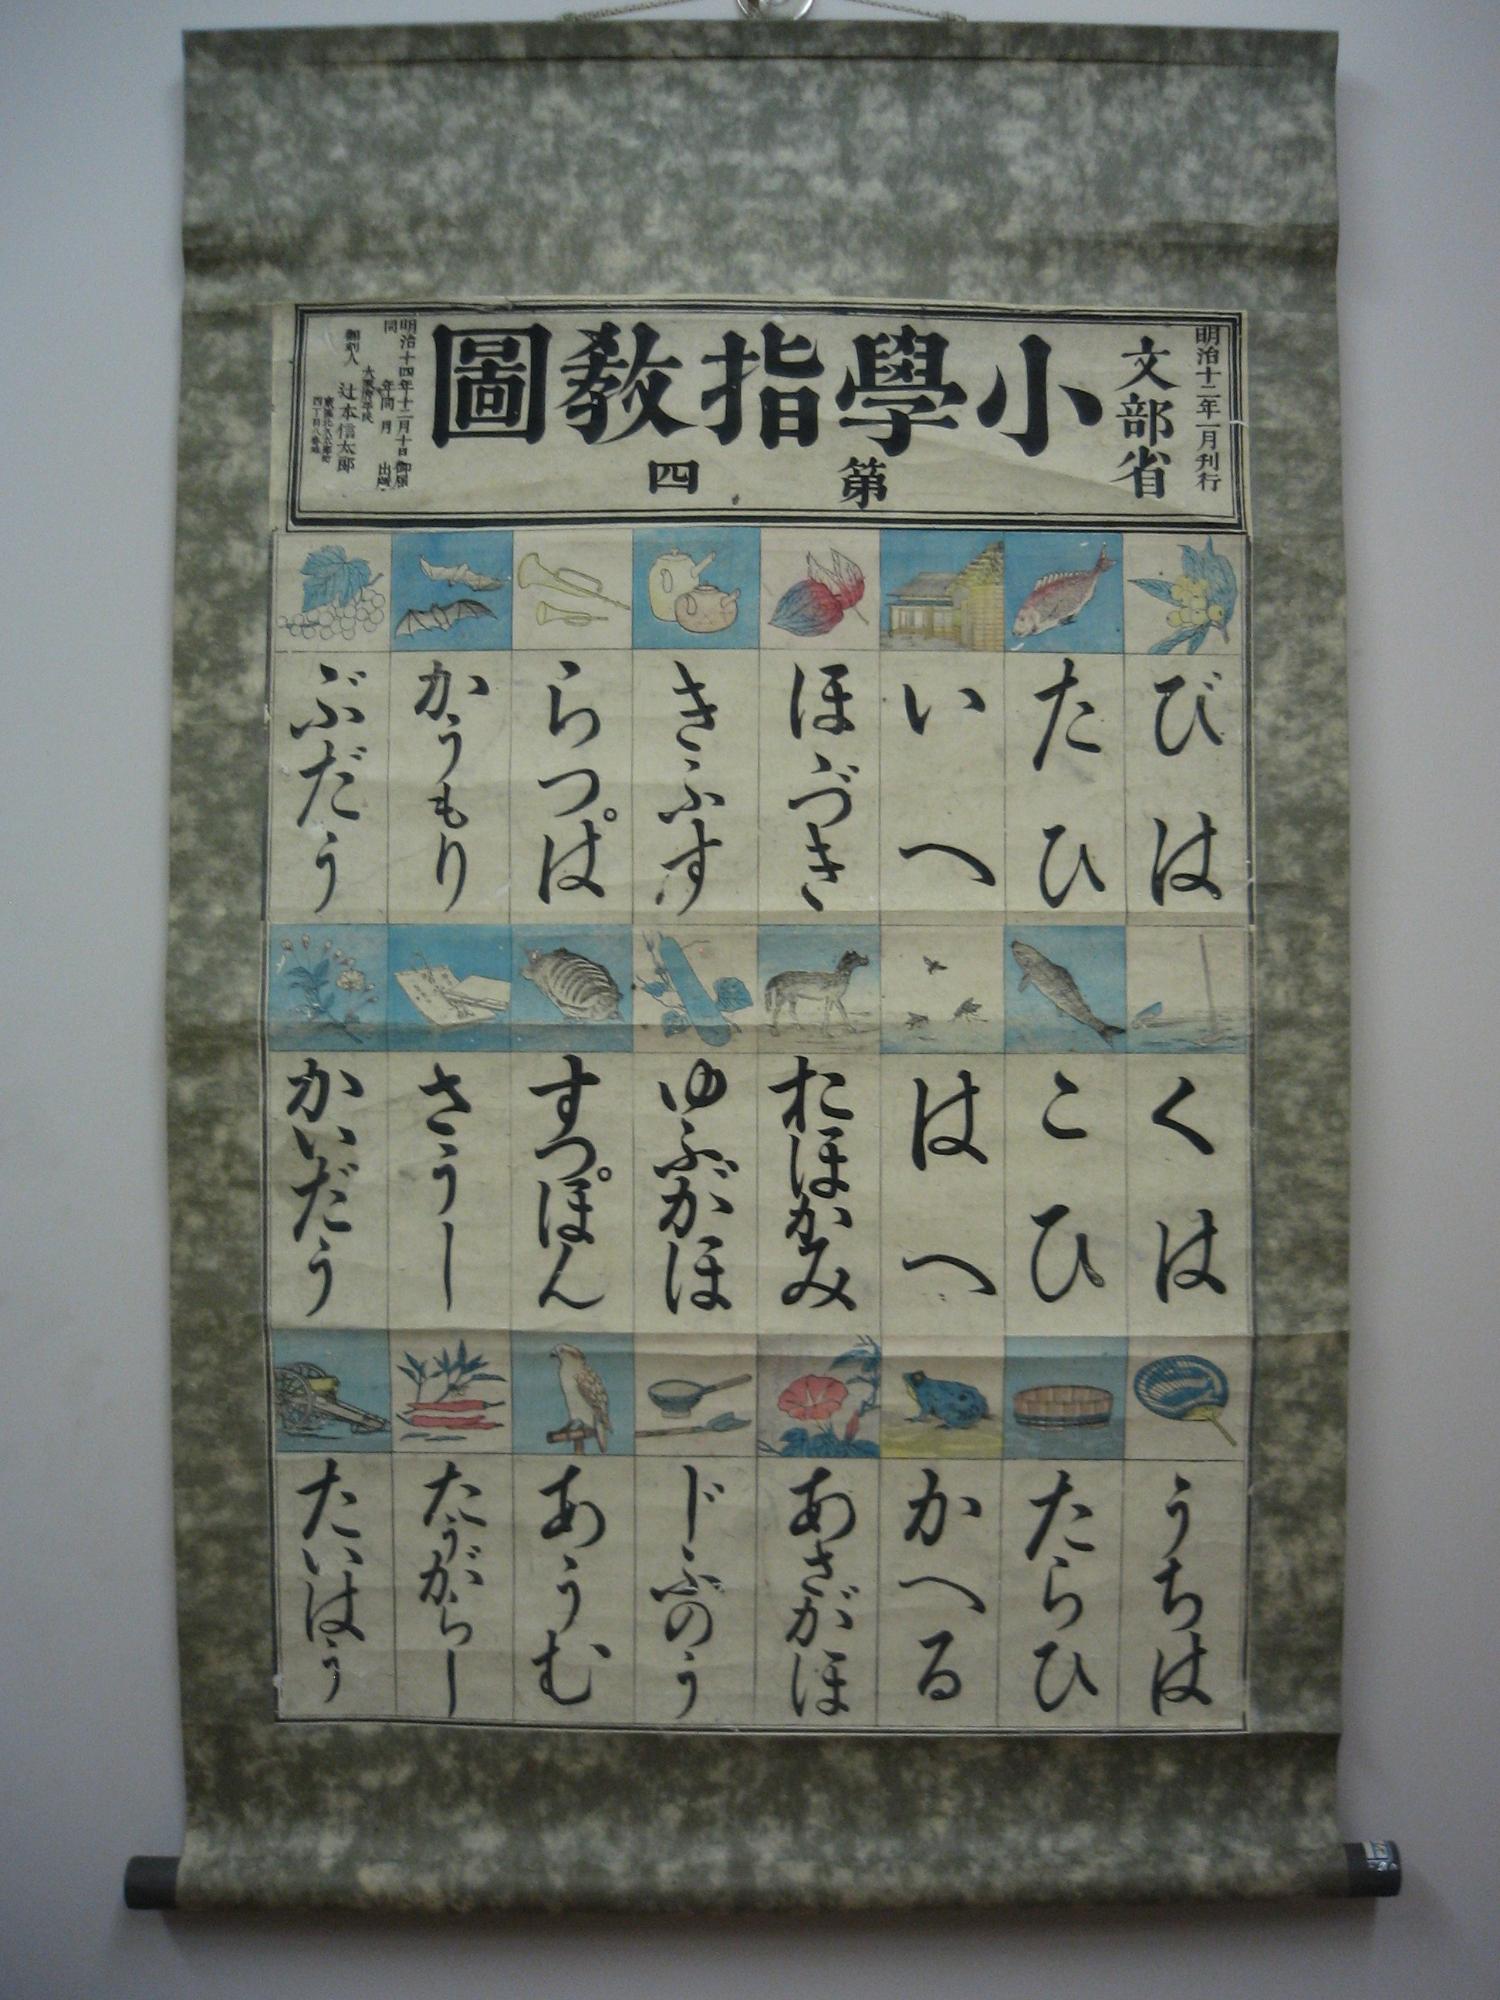 明治十二年一月刊行
文部省
小學指教圖
第四
明治十四年十二月十日御届
同年同月出版
大阪府平民
辻本信太郎
びは
たひ
いへ
ほゝづき
きふす
らつぱ
かうもり
ぶだう
くは
こひ
はへ
おほかみ
ゆふがほ
すつぽん
さうし
かいだう
うちは
たらひ
かへる
あさがほ
じふのう
あうむ
たうがらし
たいはう